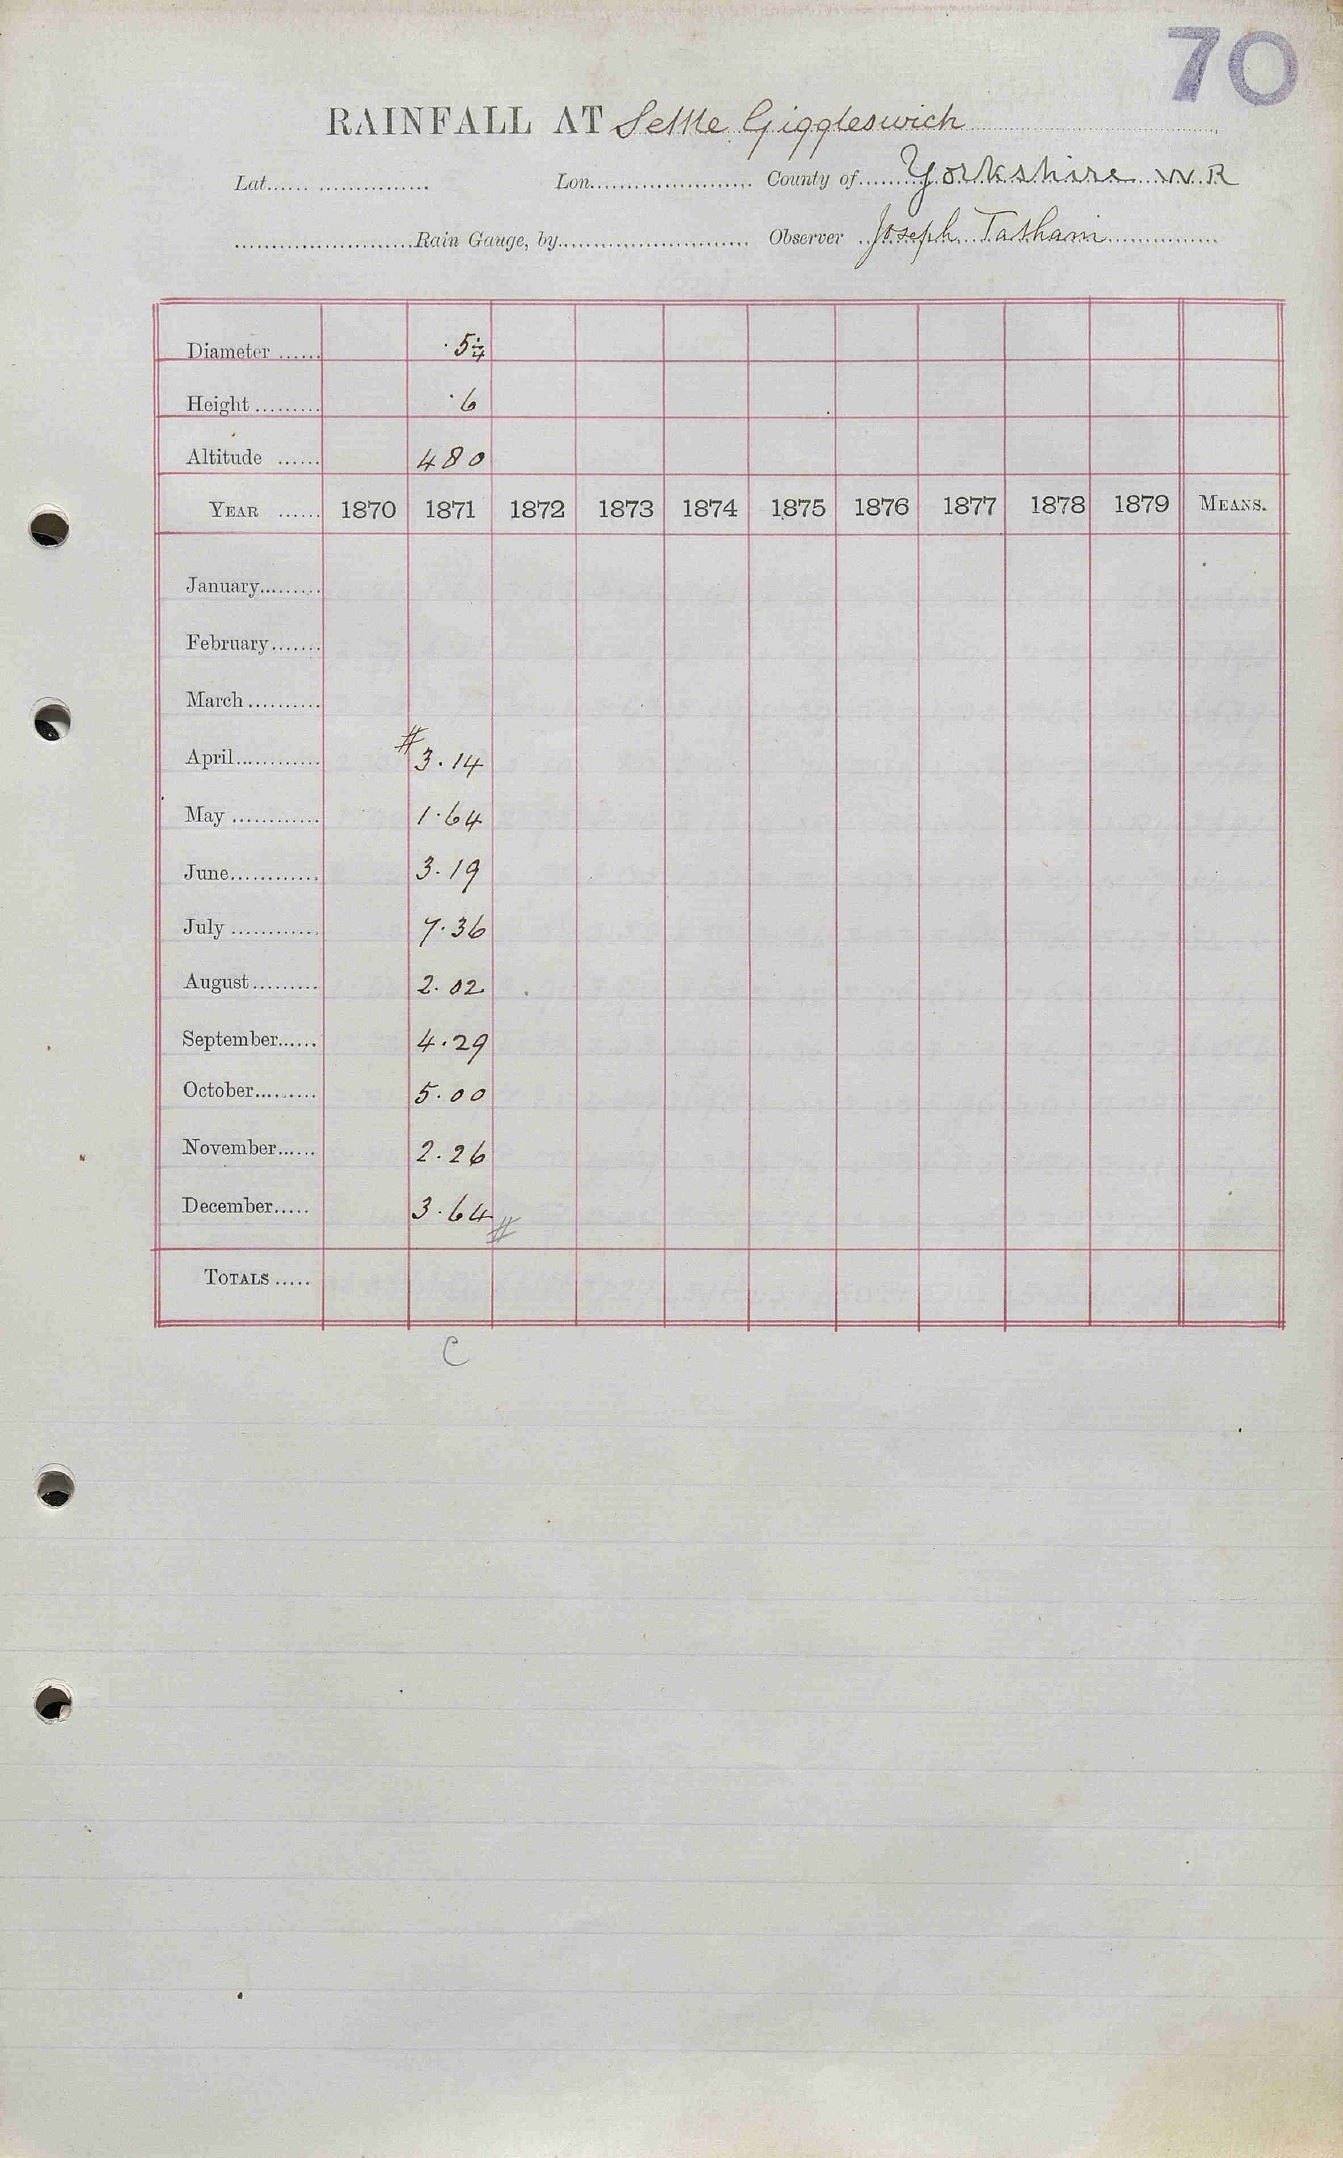 70
RAINFALL AT Settle Giggleswick
Lat. Lon. County of Yorkshire W.R
Rain Gauge, by Observer Joseph Tatham
Diameter 5
Height 6
Altitude 480
YEAR 1870 1871 1872 1873 1874 1875 1876 1877 1878 1879 MEANS.
January
February
March
April # 3.14
May 1.64
June 3.19
July 7.36
August 2.02
September 4.29
October 5.00
November 2.26
December 3.64 #
TOTALS
C